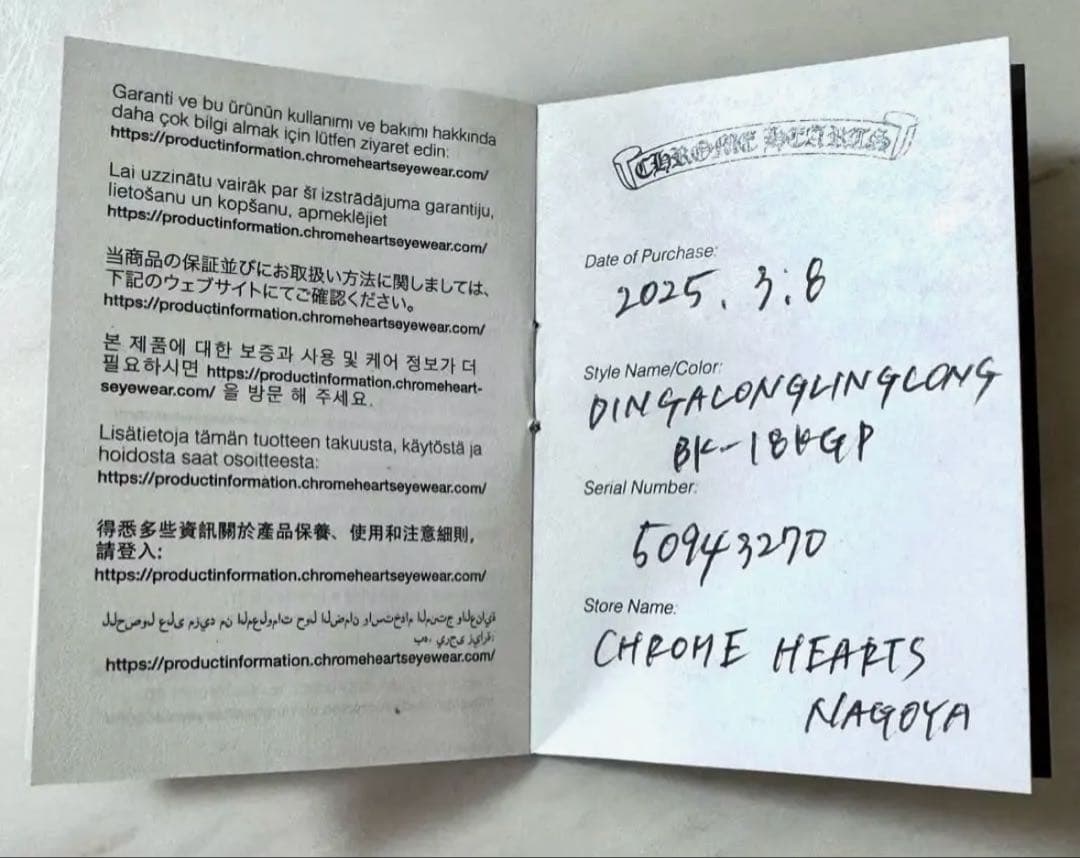 Garanti ve bu ürünün kullanımı ve bakımı hakkında
daha çok bilgi almak için lütfen ziyaret edin:
https://productinformation.chromeheartseyewear.com/
Lai uzzinātu vairāk par šī izstrādājuma garantiju,
lietošanu un kopšanu, apmeklējiet
https://productinformation.chromeheartseyewear.com/
当商品の保証並びにお取扱い方法に関しましては、
下記のウェブサイトにてご確認ください。
https://productinformation.chromeheartseyewear.com/
본 제품에 대한 보증과 사용 및 케어 정보가 더
필요하시면 https://productinformation.chromeheart-
seyewear.com/ 을 방문 해 주세요.
Lisätietoja tämän tuotteen takuusta, käytöstä ja
hoidosta saat osoitteesta:
https://productinformation.chromeheartseyewear.com/
得悉多些資訊關於產品保養、使用和注意細則,
請登入:
https://productinformation.chromeheartseyewear.com/
للحصول على مزيد من المعلومات حول الضمان واستخدام المنتج والعناية
به، يرجى زيارة:
https://productinformation.chromeheartseyewear.com/
CHROME HEARTS
Date of Purchase:
2025. 3. 8
Style Name/Color:
DINGALONGLINGLONG
BK-18KGP
Serial Number:
50943270
Store Name:
CHROME HEARTS
NAGOYA